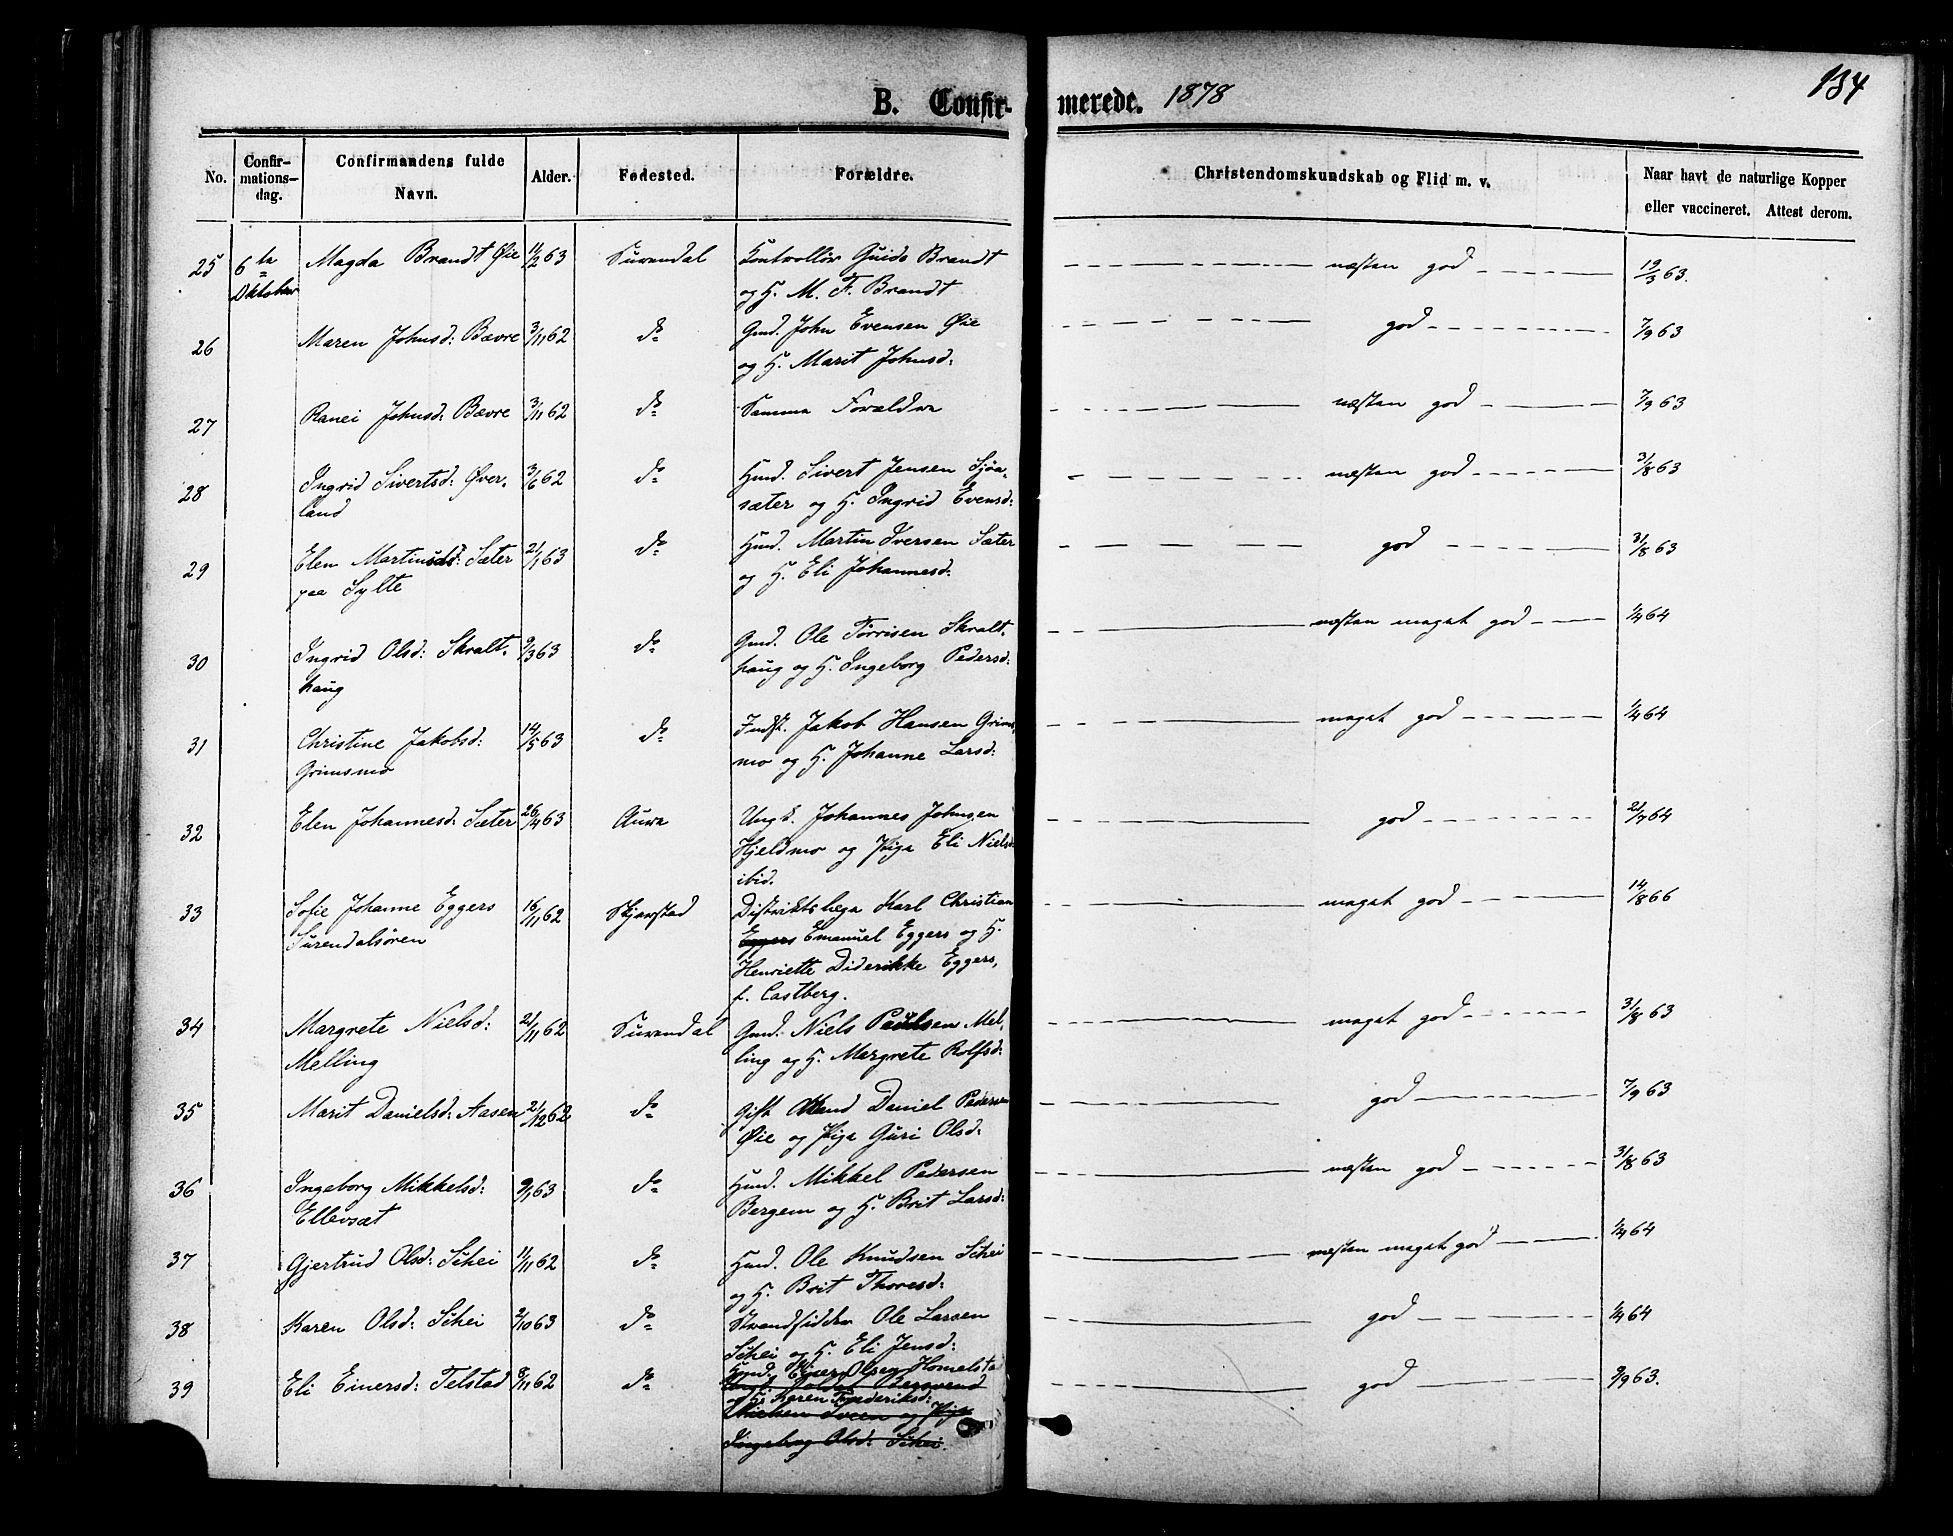 134
B. Confirmerede. 1878
No. Confirmations-dag. Confirmandens fulde Navn. Alder. Fødested. Forældre. Christendomskundskab og Flid m. v. Naar havt de naturlige Kopper eller vaccineret. Attest derom.
25 6te Oktober Magda Brandt Øie 11/2 63 Surendal Kontrollör Guido Brandt næsten god 19/3 63.
og H. M. F. Brandt
26 Maren Johnsd: Bævre 3/11 62 do Gmd. John Evensen Øie god 7/9 63
og H. Marit Johnsd:
27 Ranei Johnsd: Bævre 3/11 62 do Samme Forældre næsten god 7/9 63
28 Ingrid Sivertsd: Øver- 3/6 62 do Gmd. Sivert Jensen Sjöa- næsten god 31/8 63
land sæter og H. Ingrid Evensd:
29 Elen Martinsd: Sæter 21/1 63 do Hmd. Martin Iversen Sæter god 31/8 63
paa Sylte og H. Eli Johannesd:
30 Ingrid Olsd: Skralt- 9/3 63 do Gmd. Ole Törrisen Skralt- næsten meget god 1/4 64
haug haug og H. Ingeborg Pedersd:
31 Christine Jakobsd: 14/5 63 do Indst. Jakob Hansen Grims- meget god 1/4 64
Grimsmo mo og H. Johanne Larsd:
32 Elen Johannesd: Sæter 26/4 63 Aure Ungk. Johannes Johnsen god 21/7 64
Hjeldmo og Pige Eli Nielsd:
ibid.
33 Sofie Johanne Eggers 16/11 62 Skjærstad Distriktslæge Karl Christian meget god 14/8 66
Surendalsören Eggers Emanuel Eggers og H.
Henriette Diderikke Eggers,
f. Castberg.
34 Margrete Nielsd: 21/11 62 Surendal Gmd. Niels Paulsen Mel- meget god 31/8 63
Melling ling og H. Margrete Rolfsd:
35 Marit Danielsd: Aasen 21/12 62 do Gift Mand Daniel Pedersen god 7/9 63
Øie og Pige Guri Olsd:
36 Ingeborg Mikkelsd: 9/1 63 do Hmd. Mikkel Pedersen næsten god 31/8 63
Ellevsæt Bergem og H. Brit Larsd:
37 Gjertrud Olsd: Schei 11/11 62 do Hmd. Ole Knudsen Schei næsten meget god 1/4 64
og H. Brit Thoresd:
38 Karen Olsd: Schei 2/10 63 do Strandsidder Ole Larsen god 1/4 64
Schei og H. Eli Jensd:
39 Eli Einersd: Telstad 8/11 62 do Hmd. Einer Olsen Homelstad god 9/9 63.
og H. Karen Frederiksd:
Ingeborg Olsd: Schei.